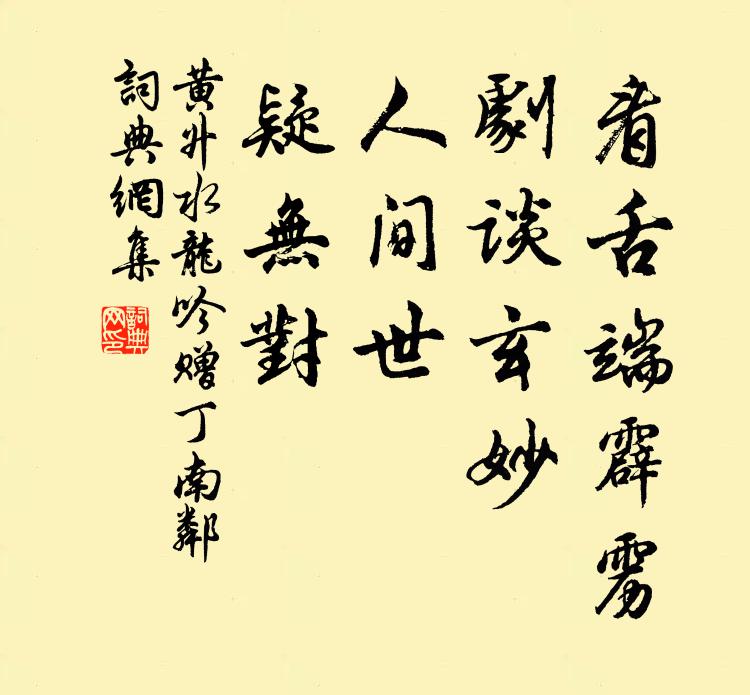 看舌端霹雳
劇談玄妙
人間世
疑無對
黄升水龍吟贈丁南鄰
詞典網集
詞典網印